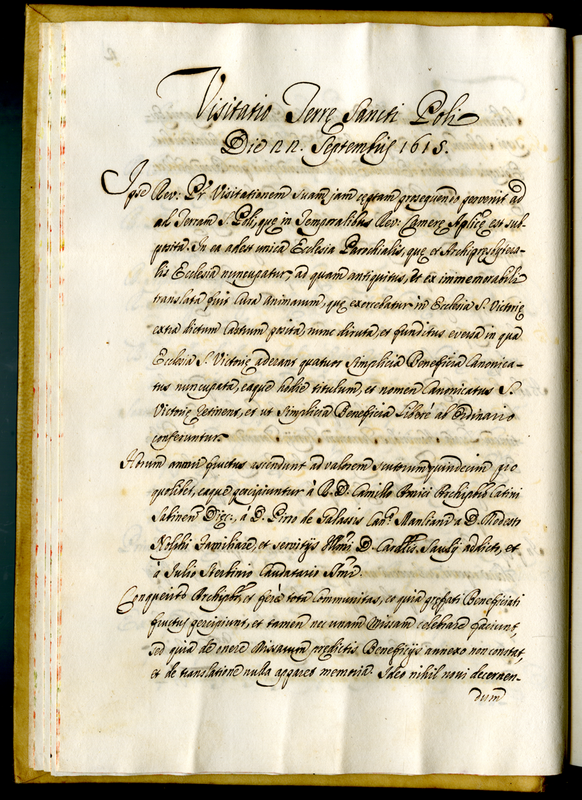 Visitatio Terre Sancti Poli
Die 22. Septembris 1615.
Ipse Rev: Pr Visitationem suam jam ceptam prosequendo pervenit ad
ad Terram S. Poli, que in Temporalibus Rev: Camere Aplice est sub
posita. In ea adest unica Ecclesia Parochialis, que et Archipresbitera-
lis Ecclesia nuncupatur, ad quam antiquitus, et ex immemorabili
translata fuit Cura Animarum, que exercebatur in Ecclesia S. Victorie
extra dictum Castrum posita, nunc diruta, et funditus eversa in qua
Ecclesia S. Victorie aderant quatuor Simplicia Beneficia Canonica-
tus nuncupata, eaque hodie titulum, et nomen Canonicatus S.
Victorie retinent, et ut Simplicia Beneficia libere ab Ordinario
conferuntur.
Horum annui fructus ascendunt ad valorem scutorum quindecim pro
quolibet, eaque percipiuntur à R. D. Camillo Amici Archipbro Catini
Sabinen Dioc., à D. Pirro de Galassis Can. Manliani à D. Modesto
et servitijs Illmi D. Cardlis Saulij addicto, et
à Julio Stertinio Caudatario
Conqueritur Archipbr et fere tota Communitas, ex quia prefati Beneficiati
fructus percipiunt, et tamen nec unam Missam celebrare faciunt,
sed quia de onere Missarum predictis Beneficijs annexo non constat,
et de translatione nulla apparet memoria. Ideo nihil novi decernen-
dum